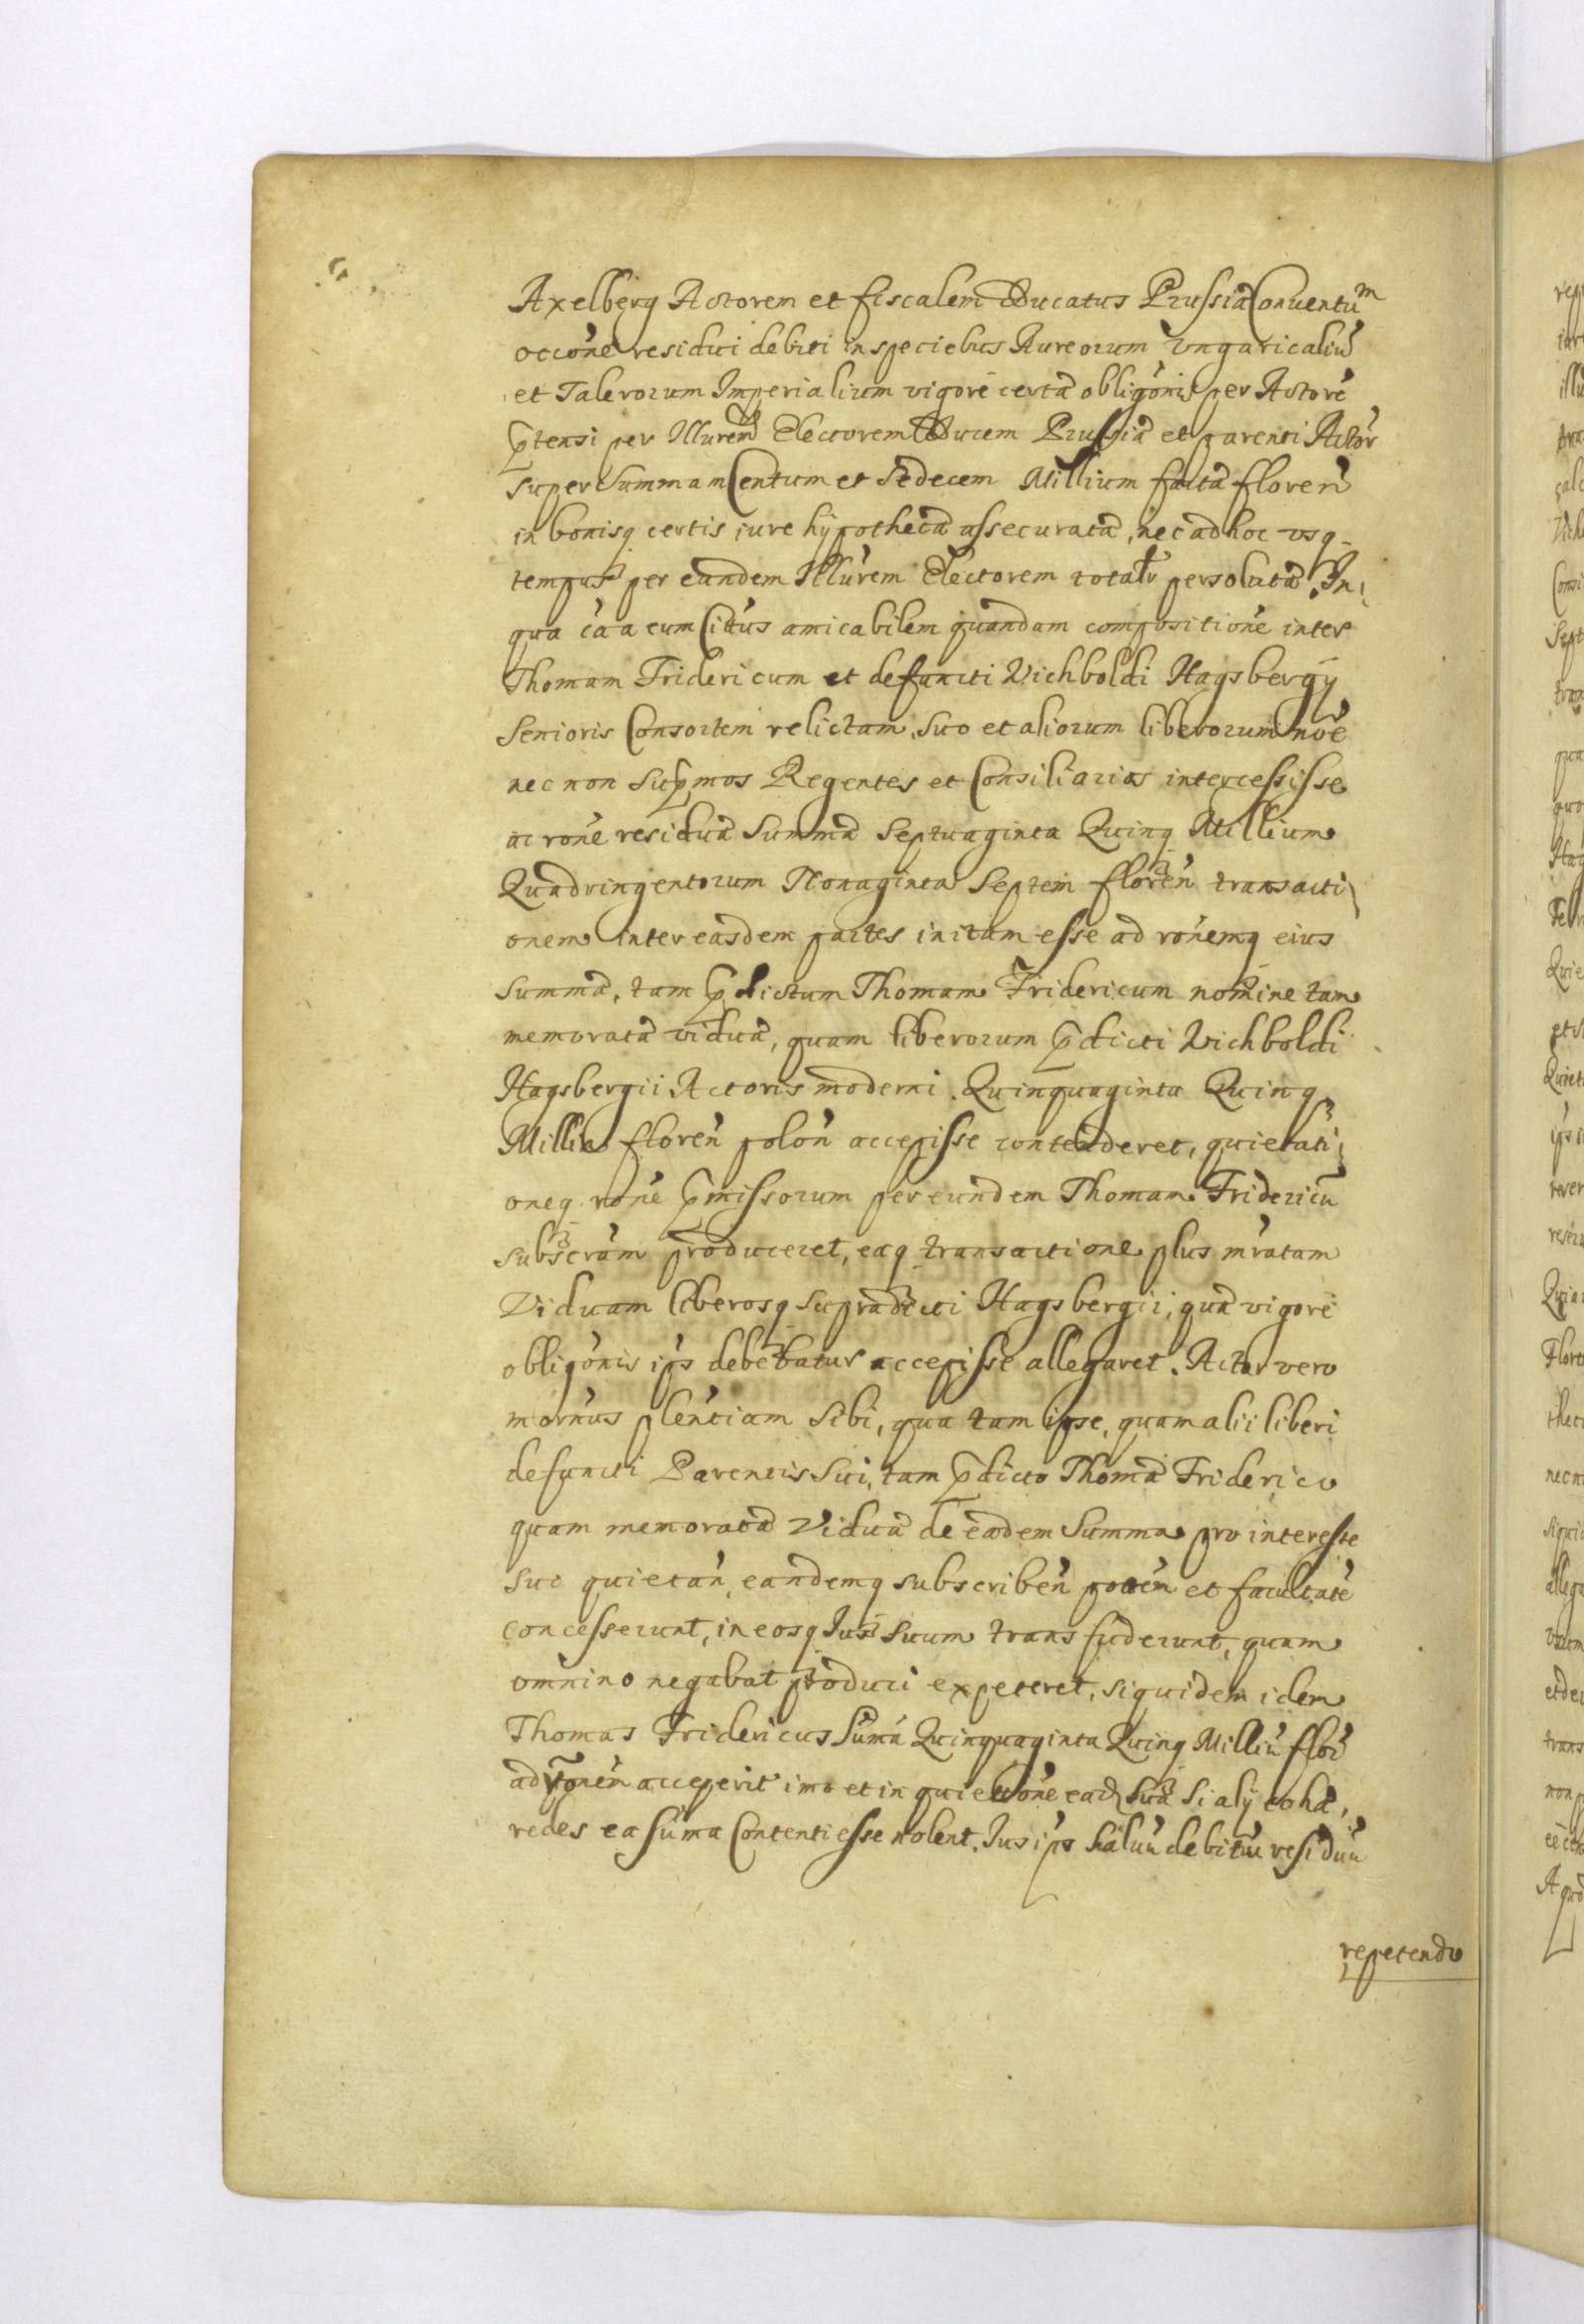 Axelberg Actorem et fiscalem Ducatus Prussiæ Conventum
occōne residui debiti in speciebus Aureorum Ungaricaliū
et Talerorum Imperialium vigore certæ obligōnis per Actorē
p̄tensi per Illurem Electorem Ducem Prussiæ et parenti Actōr
super Summam Centum et Sedecem Millium factæ floreñ
in bonisq certis iure hypothecæ assecuratæ, nec ad hoc usq
tempus per eandem Illūrem Electorem totalr persolutæ. In,
qua cāa cum Cittūs amicabilem quandam compositionē inter
Thomam Fridericum et defuncti Vichboldi Hagsbergÿ
Senioris Consortem relictam, suo et aliorum liberorum nōe
nec non Sup̄mos Regentes et Consiliarios intercessisse
ac rōne residuæ Summæ Septuaginta Quinq Millium
Quadringentorum Nonaginta Septem floreñ transacti
onem inter easdem partes initam esse ad rōnemq eius
Summæ, tam p̄dictum Thomam Fridericum nomine tam
memoratæ viduæ, quam liberorum p̄dicti Vichboldi
Hagsbergii Actoris moderni. Quinquaginta Quinq
Millia floreñ poloñ accepisse contenderet, quietati
oneq rōne p̄missorum per eundem Thomam Fridericū
subscrām produceret, eaq transactione plus mratam
Viduam liberosq supradicti Hagsbergii, quæ vigore
obligōnis ip̄s debebatur accepisse allegaret. Actor vero
mornus plentiam Sibi, qua tam ipse, quam alii liberi
defuncti Parentis Sui, tam p̄dicto Thomæ Friderico
quam memoratæ Viduæ de eadem Summa pro interesse
suo quietañ, eandemq subscribeñ potem et facultatē
concesserunt, in eosq Ius Suum transfuderunt, quam
omnino negabat produci expeteret, siquidem idem
Thomas Fridericus Sūmā Quinquaginta Quinq Milliū flor
ad rōnem acceperit imo et in quiettōne ead suā Si alÿ cohæ,
redes ea sūma Contenti esse nolent. Ius ip̄s salvū debitū residuū
repetendo